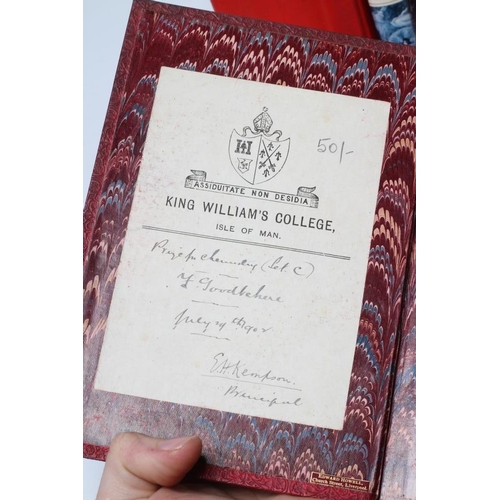 50/-
ASSIDUITATE NON DESIDIA
KING WILLIAM'S COLLEGE,
ISLE OF MAN.
Prize for Chemistry (Set C)
Goodbehere
July 1902
E.H. Kempson.
Principal
EDWARD HOWELL,
Church Street, Liverpool.